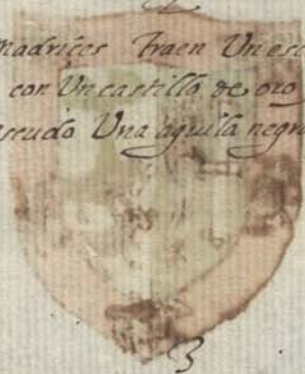 Madrices Traen Un es
con Un castillo de oro
scudo Una aguila negr
3